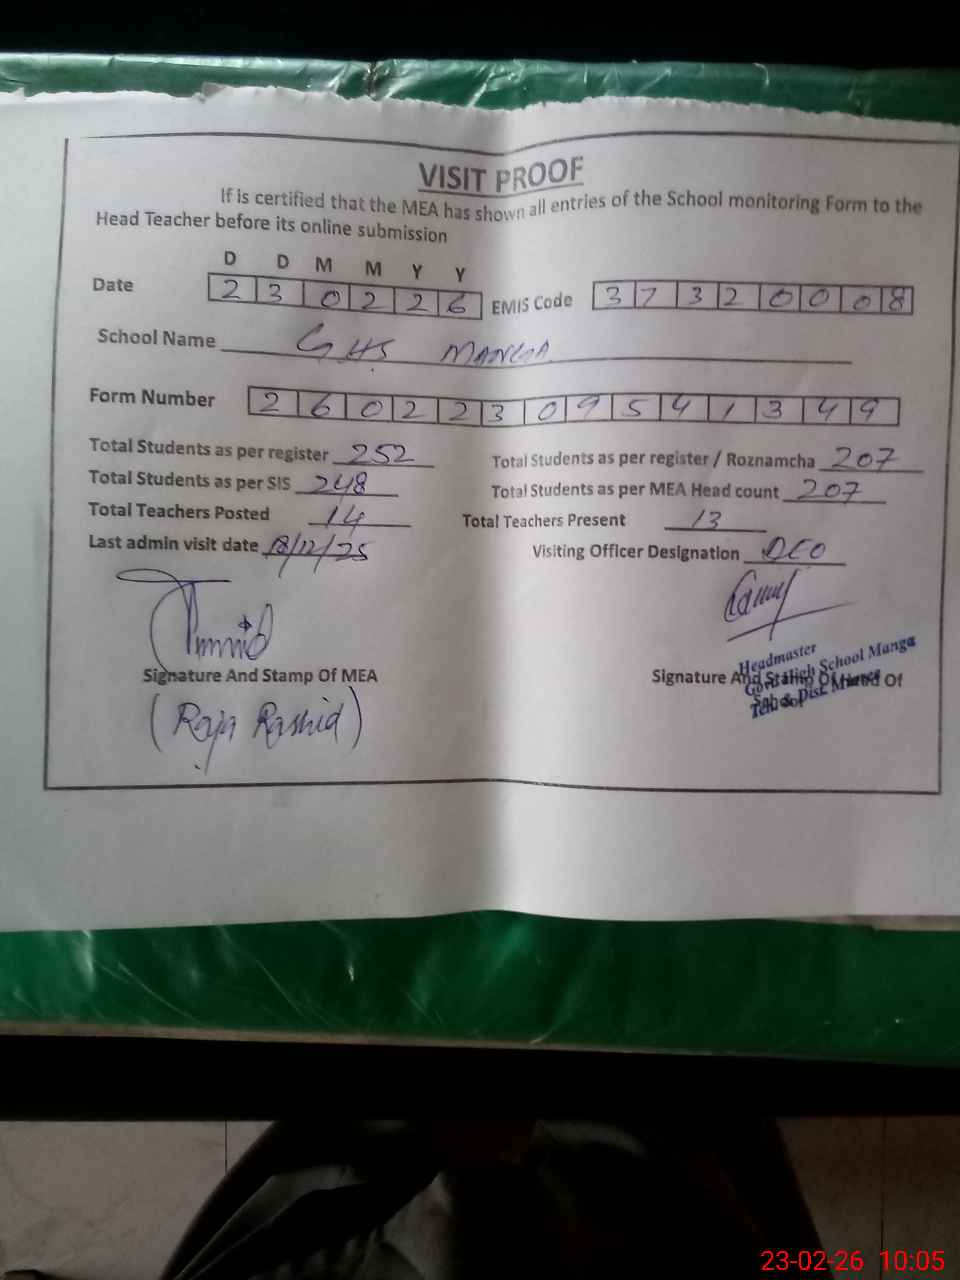 VISIT PROOF
If is certified that the MEA has shown all entries of the School monitoring Form to the
Head Teacher before its online submission
D D M M Y Y
Date 2 3 0 2 2 6 EMIS Code 3 7 3 2 0 0 0 8
School Name GHS MANGA
Form Number 2 6 0 2 2 3 0 9 5 4 1 3 4 9
Total Students as per register 252 Total Students as per register / Roznamcha 207
Total Students as per SIS 248 Total Students as per MEA Head count 207
Total Teachers Posted 14 Total Teachers Present 13
Last admin visit date 18/12/25 Visiting Officer Designation DEO
Signature And Stamp Of MEA Signature And Stamp Of Head Of
School
Headmaster
Govt. High School Manga
Teh & Dist Murree
(Raja Rashid)
23-02-26 10:05